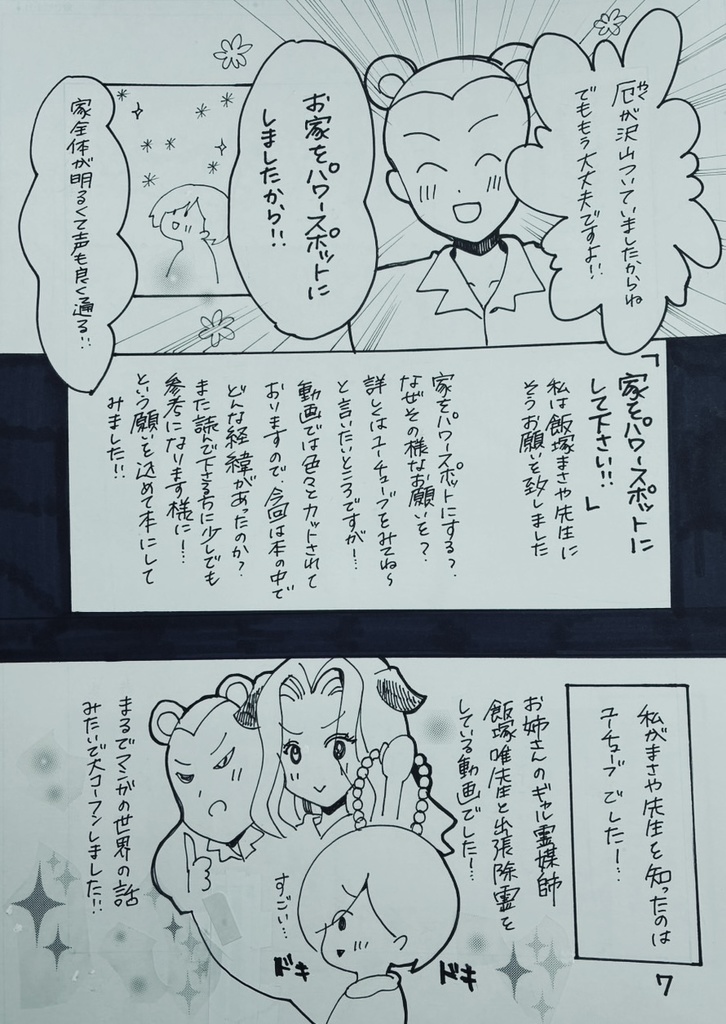 厄が沢山ついていましたからね
やく
でももう大丈夫ですよ!!
お家をパワースポットに
しましたから!!
家全体が明るくて声も良く通る!!
「家をパワースポットに
して下さい!!」
私は飯塚まさや先生に
そうお願いを致しました
家をパワースポットにする?
なぜその様なお願いを?
詳しくはユーチューブをみてね〜
と言いたいところですがー…
動画では色々とカットされて
おりますので、今回は本の中で
どんな経緯があったのか?
また読んで下さる方に少しでも
参考になります様にー…
という願いを込めて本にして
みました!!
私がまさや先生を知ったのは
ユーチューブでしたー…
お姉さんのギャル霊媒師
飯塚唯先生と出張除霊を
している動画でしたー…
すごい…
ドキ
ドキ
まるでマンガの世界の話
みたいで大コーフンしました!!
7